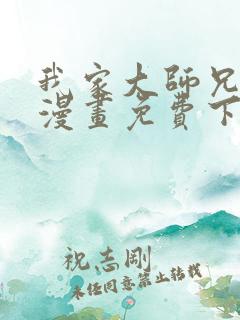 我家大師兄
漫畫免費下
祝志剛
未任同意禁止转载